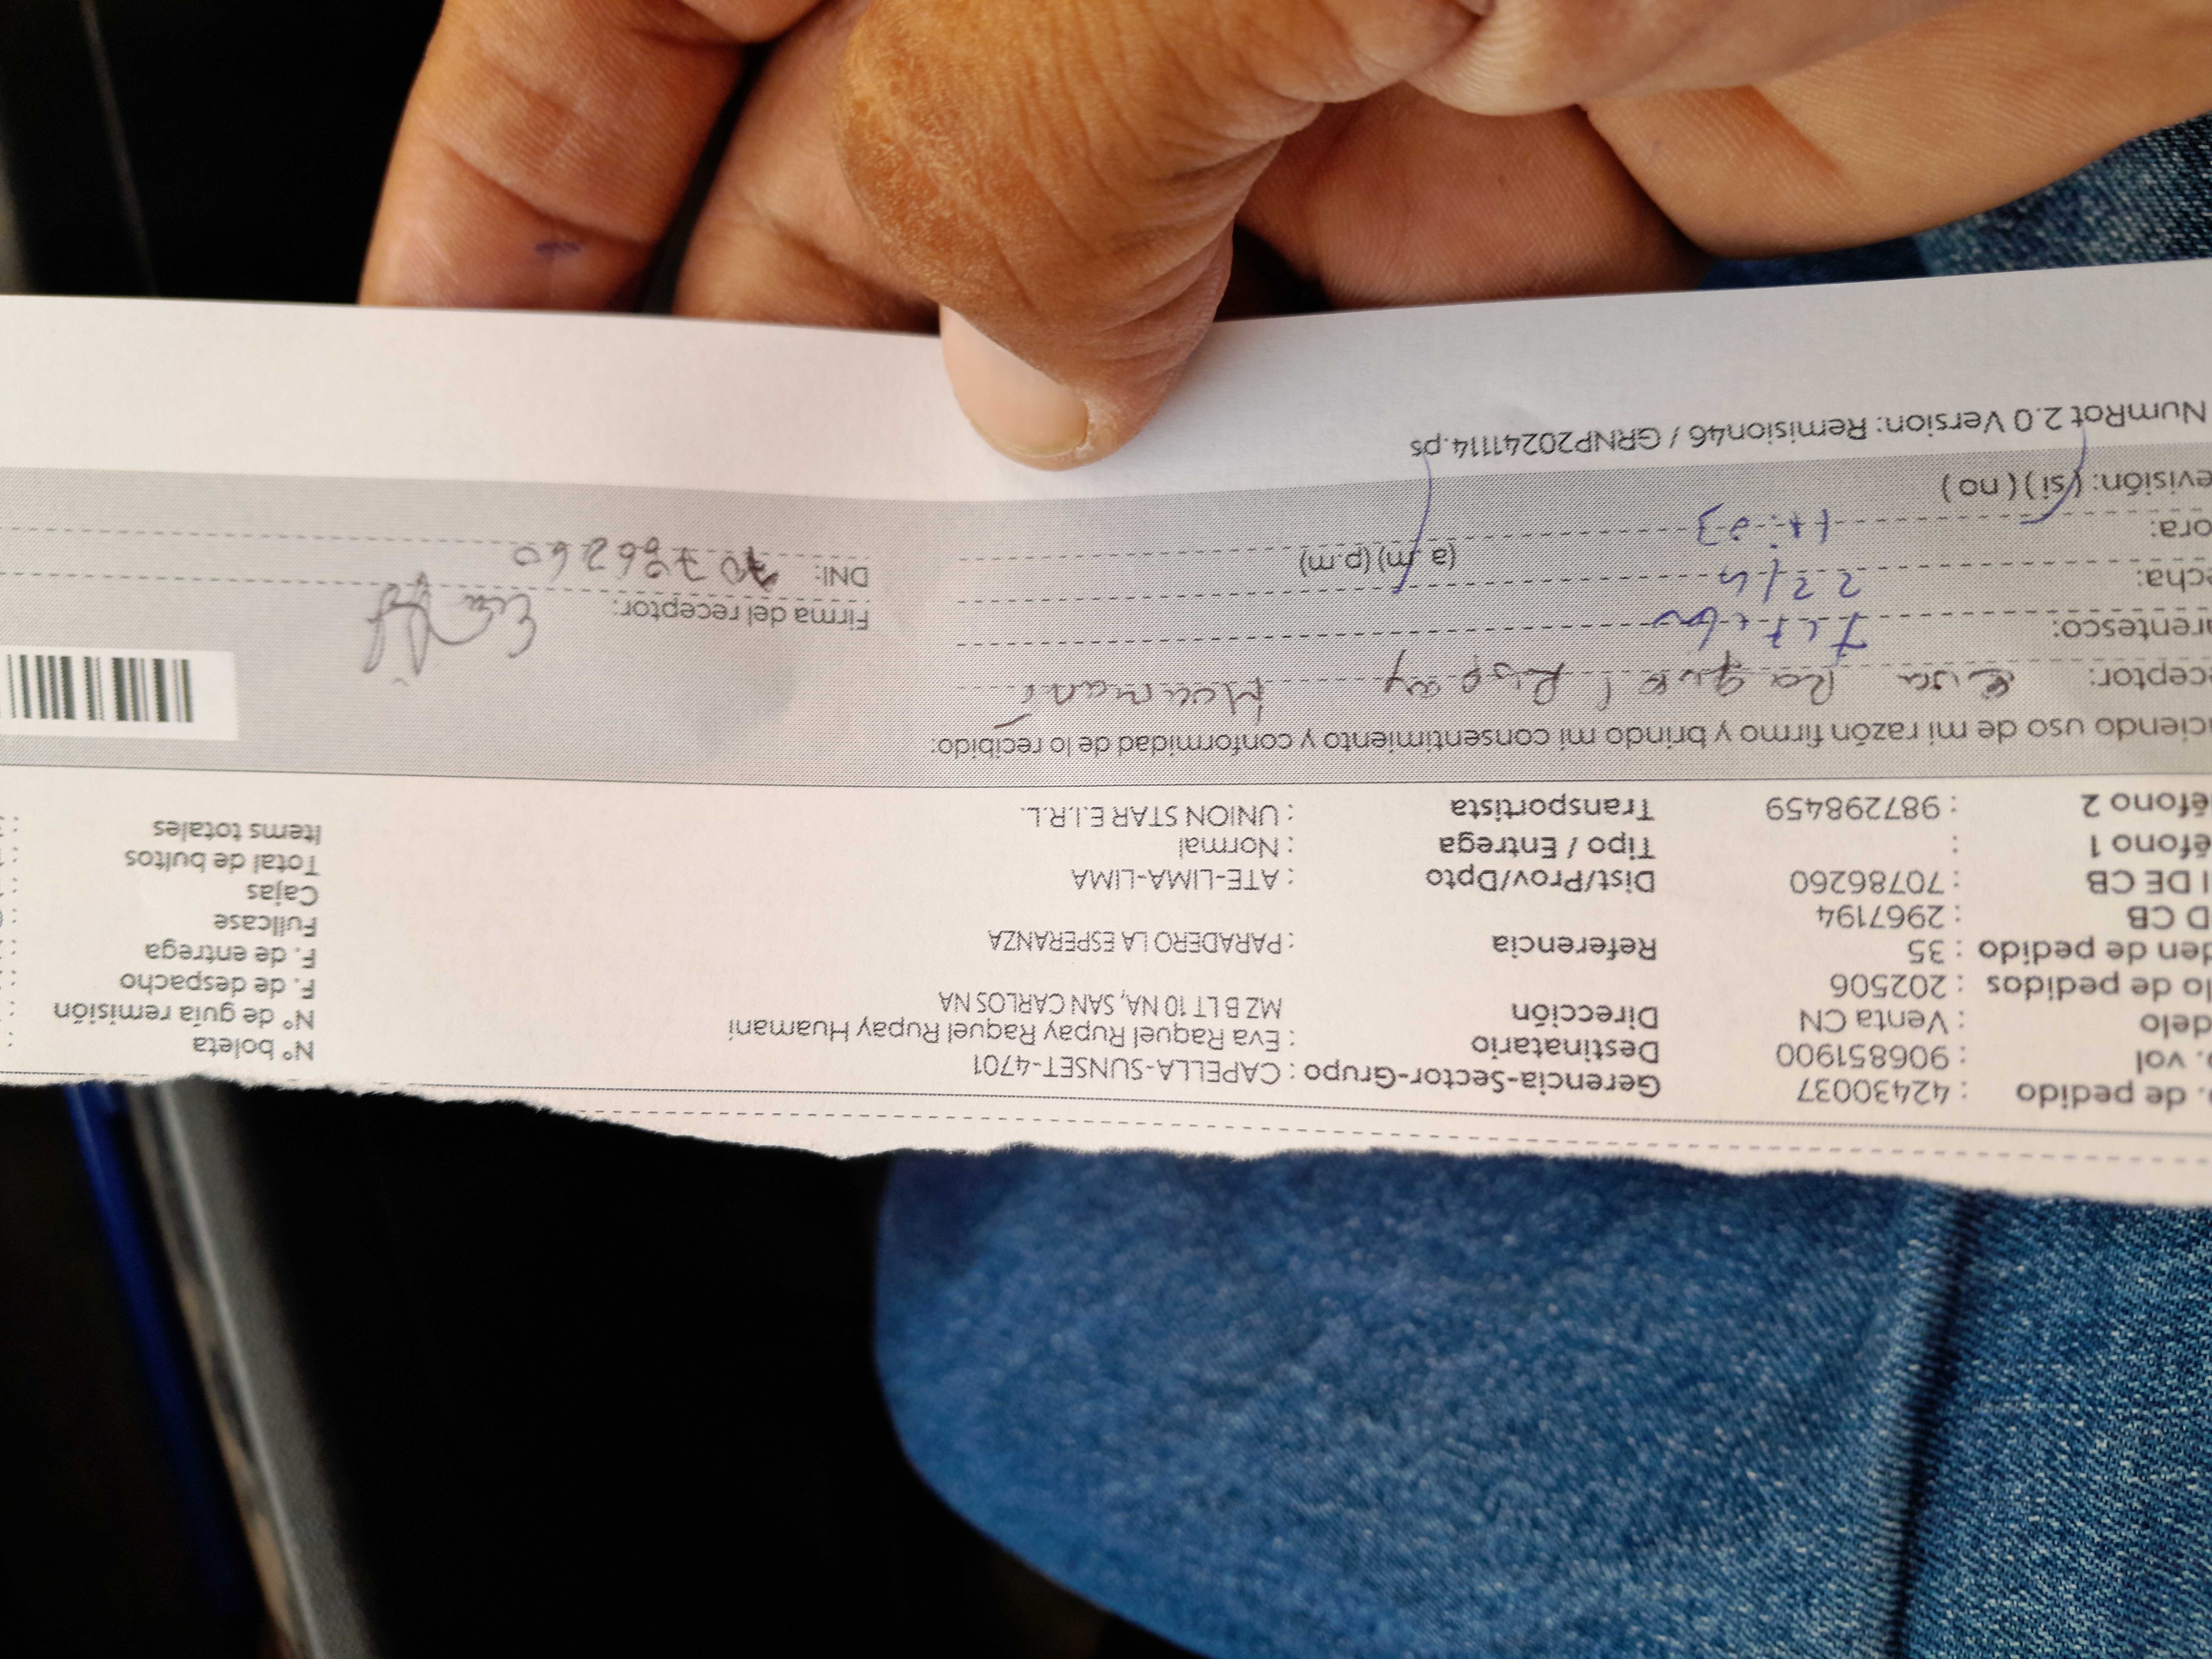 . de pedido : 42430037 Gerencia-Sector-Grupo : CAPELLA-SUNSET-4701
. vol : 906851900 Destinatario : Eva Raquel Rupay Raquel Rupay Huamani Nº boleta :
delo : Venta CN Dirección MZ B LT 10 NA, SAN CARLOS NA Nº de guía remisión :
lo de pedidos : 202506 F. de despacho :
den de pedido : 35 Referencia : PARADERO LA ESPERANZA F. de entrega :
D CB : 2967194 Fullcase :
I DE CB : 70786260 Dist/Prov/Dpto : ATE-LIMA-LIMA Cajas :
éfono 1 : Tipo / Entrega : Normal Total de bultos :
éfono 2 : 987298459 Transportista : UNION STAR E.I.R.L. Items totales :
ciendo uso de mi razón firmo y brindo mi consentimiento y conformidad de lo recibido:
eceptor: Eva Raquel Rupay Huamani
arentesco: Firma del receptor:
echa: 22/4
ora: (a.m) (p.m) DNI: 70786260
evisión: (si) (no)
NumRot 2.0 Version: Remision46 / GRNP20241114.ps